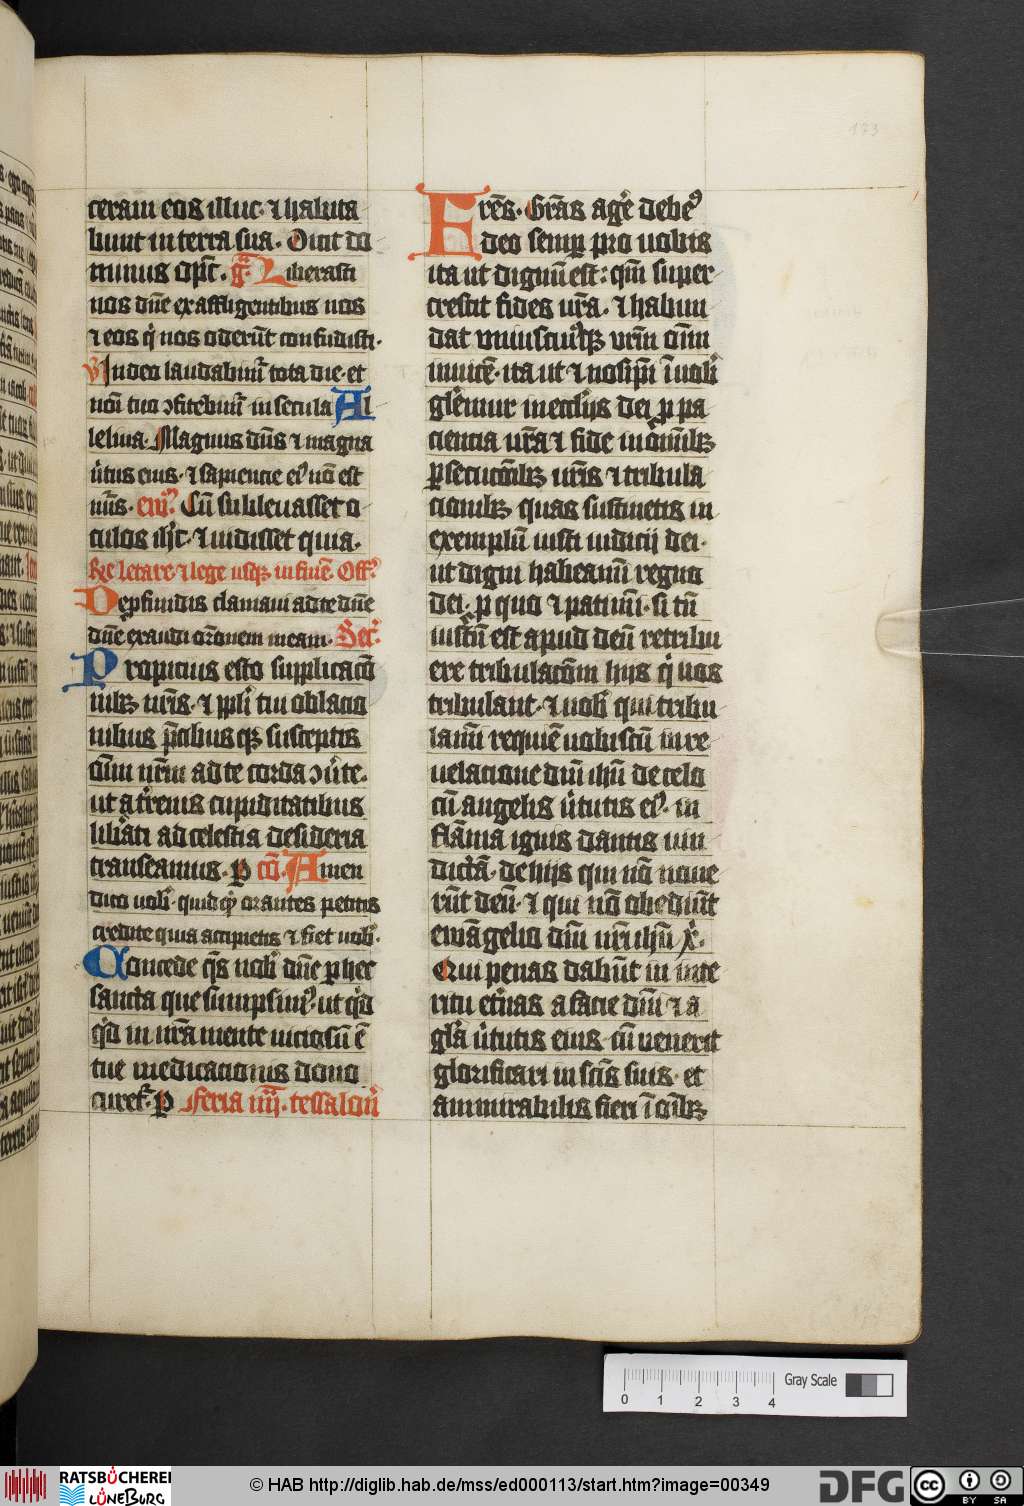 173
ceram eos illuc · ⁊ habita
bunt in terra sua · Dixit do
minus om̅ps̅ · gᷓ Liberasti
nos dn̅e ex affligentibus nos
⁊ eos qͥ nos oderūt confudisti ·
V̅ In deo laudabimᷣ tota die · et
noī tuo ↄfitebimᷣ in secula Al
leluia · Magnus dn̅s ⁊ magna
ͥutus eius · ⁊ sapiencie eiꝰ nō est
nūs · ewᷤ Cū subleuasset o
culos ih̅c · ⁊ uidisset quia ·
Re letare · ⁊ lege usqꝫ in finē · Off̅
De pfūdis clamaui ad te dn̅e
dn̅e exaudi or̅onem meam · Secᷤ
Propicius esto supplicacō
nibꝫ nr̅is · ⁊ ppli tui oblacio
nibus p̅cibus qꝫ susceptis
om̅iū nr̅m ad te corda ↄuͥte ·
ut a tͥrenis cupiditatibus
libͥati ad celestia desideria
transeamus · p cō · Amen
dico uobͥ · quidqͥd orantes petitis
credite quia accipietis ⁊ fiet uobͥ ·
Concede qs̅ nobͥ dn̅e p hec
sancta que sumpsimꝰ · ut qͥd
qͥd in nr̅a mente uiciosū ē
tue medicacionis dono
curetᷣ · p Feria iiii · tessaloñ
Fres̅ · Grās agͥe debeꝰ
deo semp pro uobis
ita ut dignū est : qm̅ super
crescit fides ur̅a · ⁊ habun
dat vniuscuiꝰqꝫ vr̅m om̅iū
inuicē · ita ut ⁊ nosip̅i ī uobͥ
glͥemur in ecclͥijs dei p pa
ciencia ur̅a ⁊ fide in om̅ibꝫ
psecucōibꝫ ur̅is ⁊ tribula
cionibꝫ quas sustinetis in
exemplū iusti iudicij dei ·
ut digni habeamī regno
dei · p quo ⁊ patimī · si tn̅
iustū est apud deū retribu
ere tribulacōm hijs qͥ uos
tribulant · ⁊ uobͥ qui tribu
lamī requiē nobiscū in re
uelacione dni ihu̅ de celo
cū angelis uͥtutis eiꝰ · in
flāma ignis dantis uin
dictā · de hijs qui nō noue
rūt deū · ⁊ qui nō obediūt
ewāgelio dn̅i nr̅i ihu̅ xͥ ·
Qui penas dabūt in inte
ritu etͥnas a facie dn̅i ⁊ a
glͥa uͥtutis eius · cū venerit
glorificari in scīs suis · et
ammirabilis fieri ī om̅ibꝫ
0 1 2 3 4
Gray Scale
RATSBÜCHEREI
LÜNEBURG
© HAB http://diglib.hab.de/mss/ed000113/start.htm?image=00349
DFG
cc BY SA